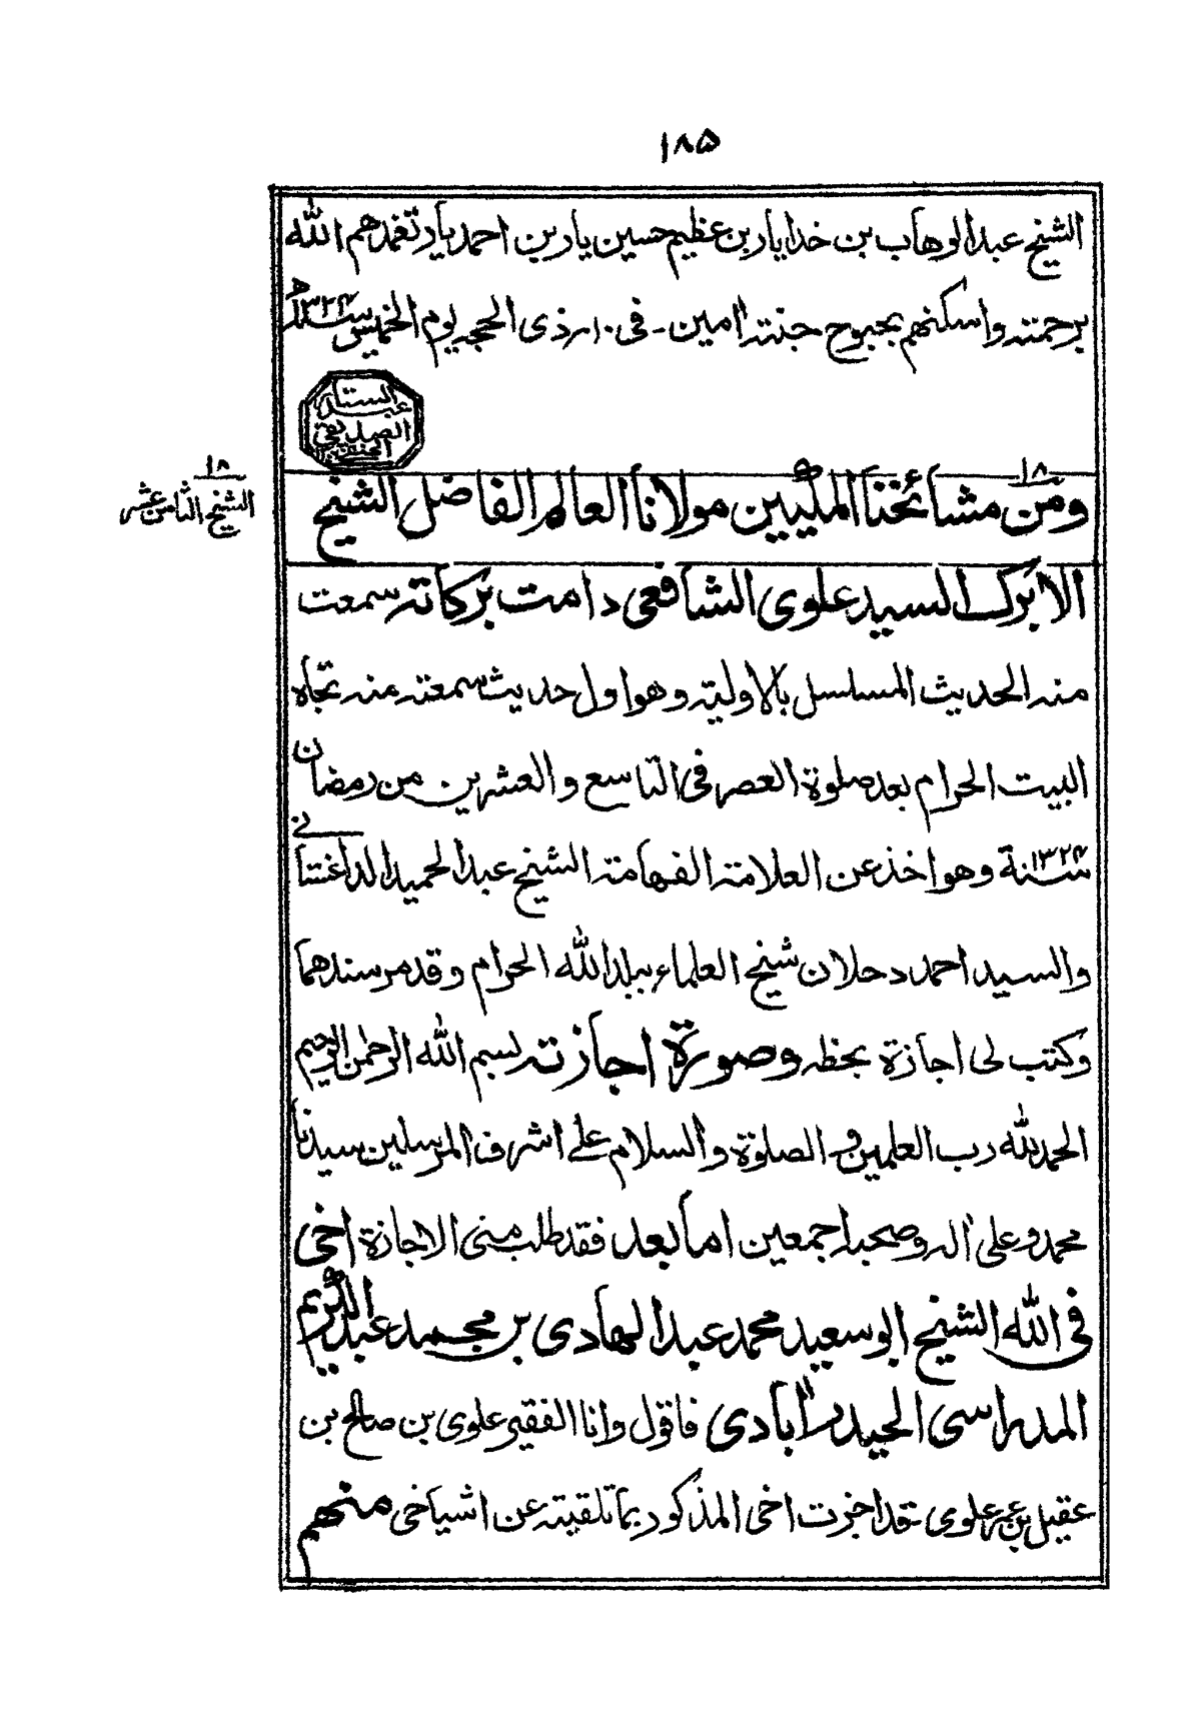 ١٨٥
الشيخ عبد الوهاب بن خدا يار بن عظيم حسين يار بن احمد يار تغمدهم الله
برحمته واسكنهم بحبوح جنته امين ـ فى ١٠ر ذى الحجه يوم الخميس سنة ١٣٢٤ه
عبد الستار
الصديقى
الحنفى
١٨
الشيخ الثامن عشر
١٨
ومن مشائخنا المكيين مولانا العالم الفاضل الشيخ
الابرك السيد علوى الشافعى دامت بركاته سمعت
منه الحديث المسلسل بالاولية وهو اول حديث سمعته منه تجاه
البيت الحرام بعد صلوة العصر فى التاسع والعشرين من رمضان
سنة ١٣٢٤ وهو اخذ عن العلامة الفهامة الشيخ عبد الحميد الداغستانى
والسيد احمد دحلان شيخ العلماء ببلد الله الحرام وقد مر سندهما
وكتب لى اجازة بخطه وصورة اجازته بسم الله الرحمن الرحيم
الحمد لله رب العلمين و الصلوة والسلام على اشرف المرسلين سيدنا
محمد وعلى اله وصحبه اجمعين اما بعد فقد طلب منى الاجازة اخى
فى الله الشيخ ابو سعيد محمد عبد الهادى بن محمد عبد الكريم
المدراسى الحيدرابادى فاقول وانا الفقير علوى بن صالح بن
عقيل بن عمر علوى قد اجزت اخى المذكور بما تلقيته عن اشياخى منهم